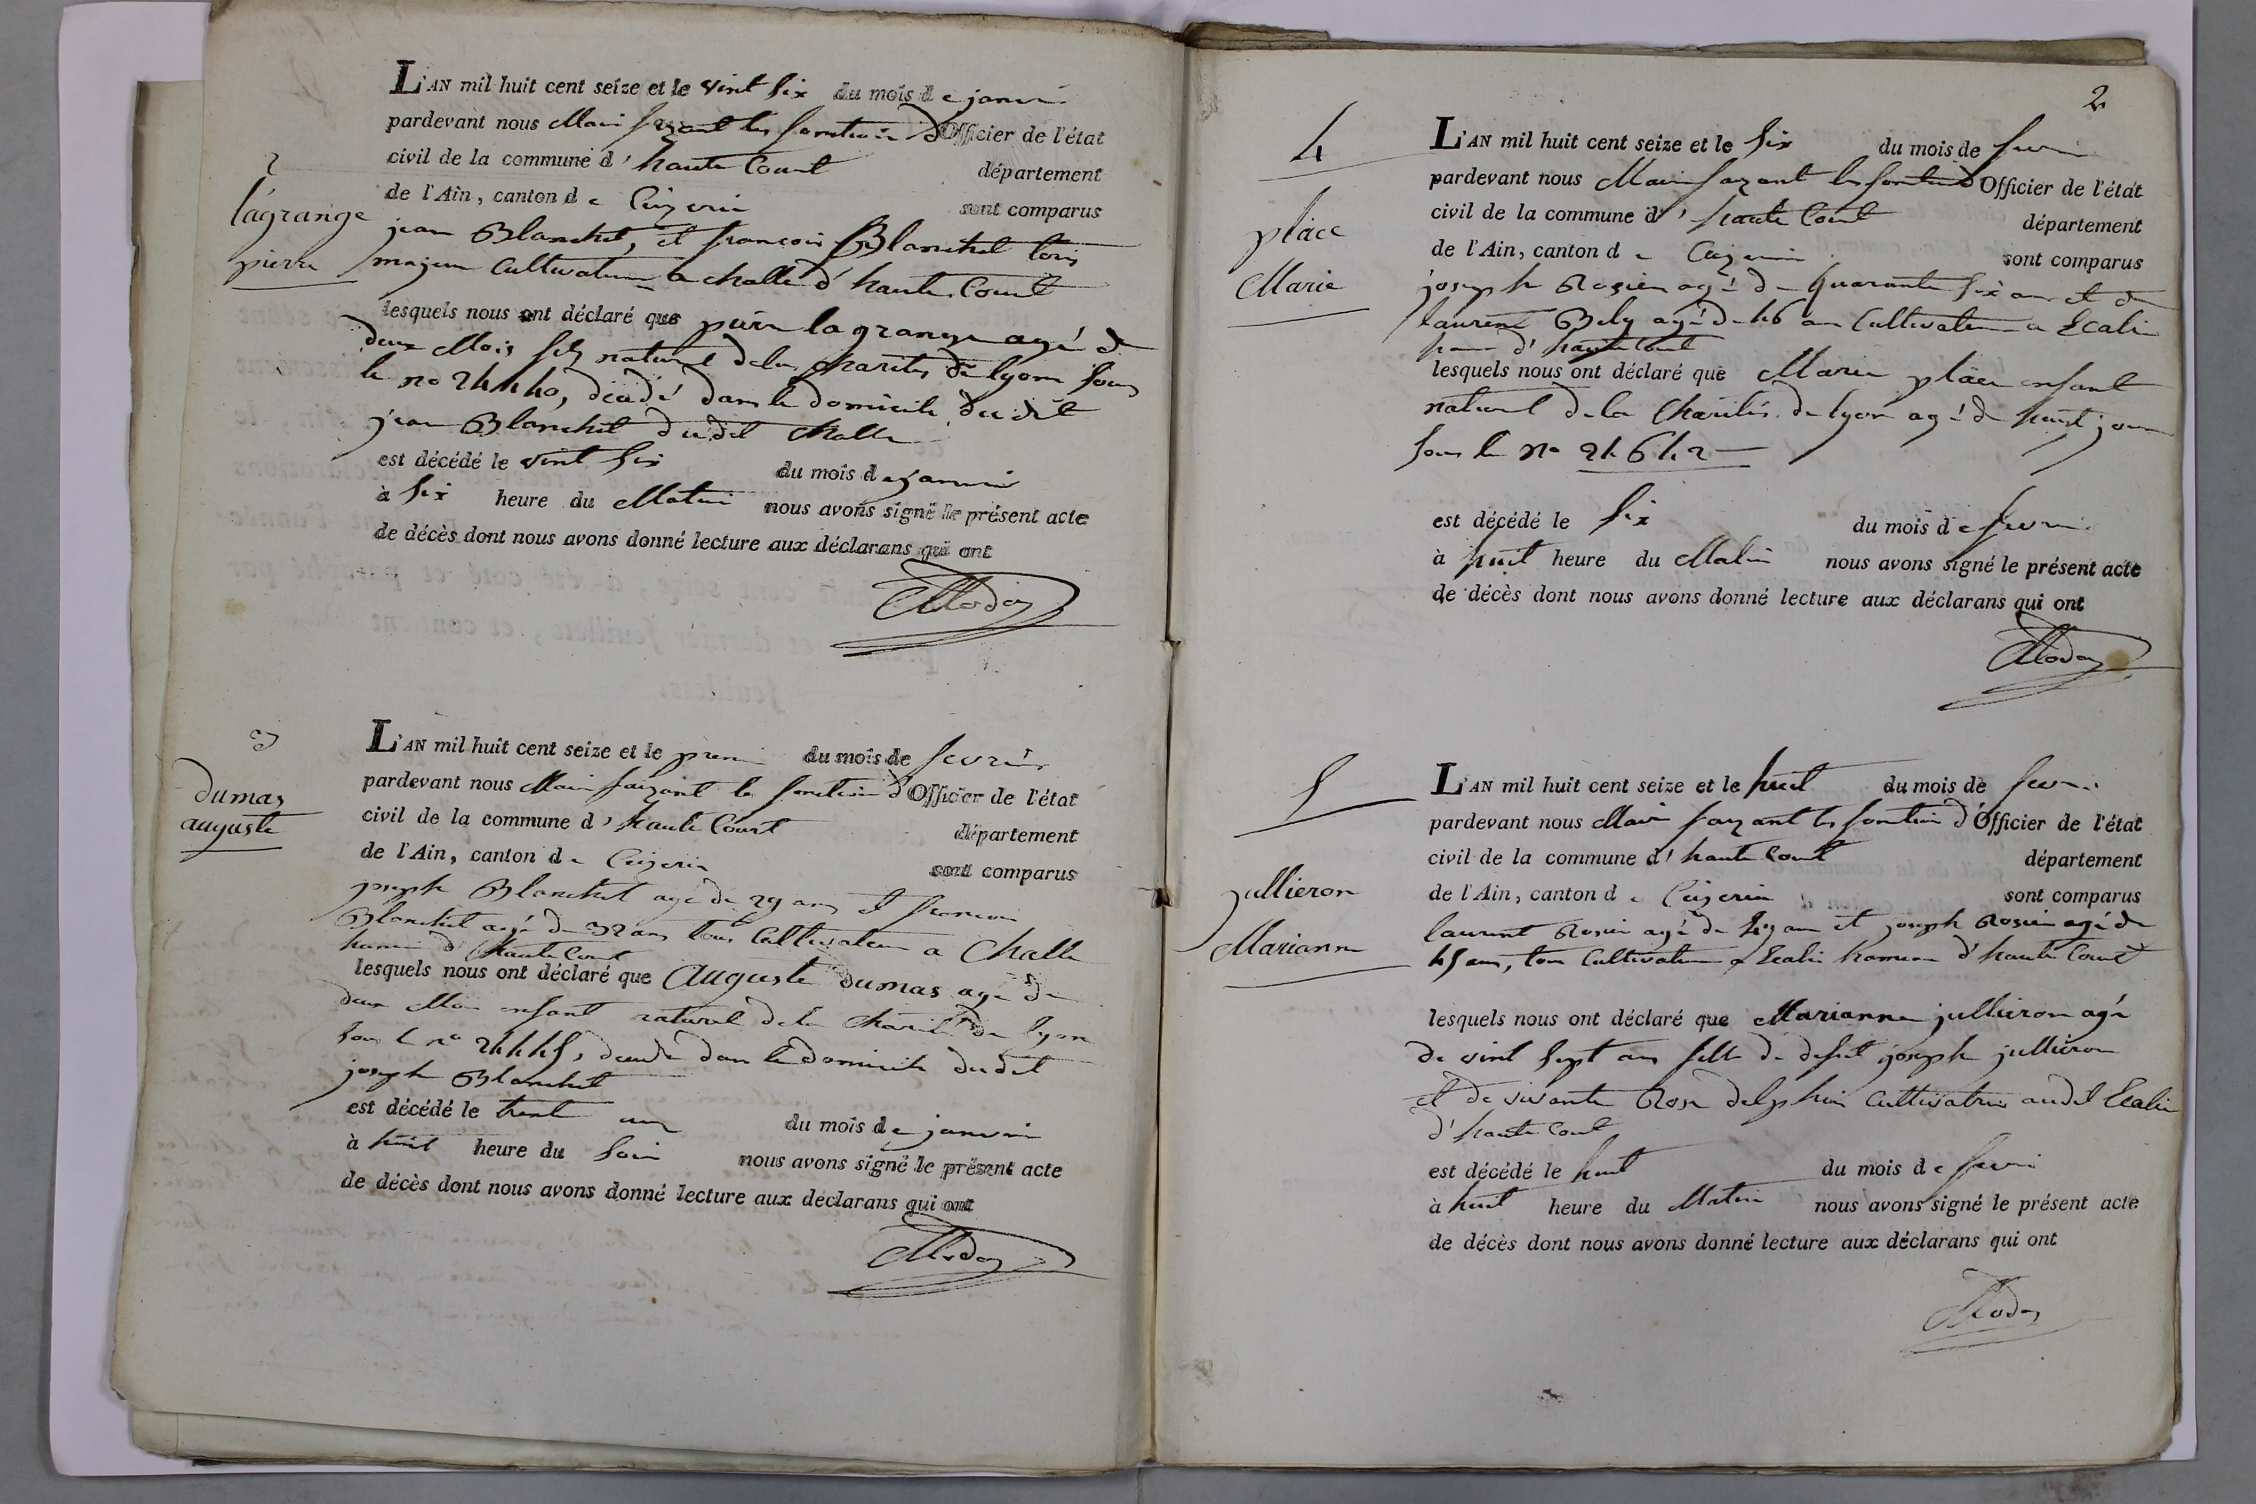 2
lagrange
pierre
L'AN mil huit cent seize et le vint six du mois de janvi
pardevant nous Mair fezant les fonction d'Officier de l'état
civil de la commune d'haute Court département
de l'Ain, canton de Ceizeria sont comparus
jean Blanchet, et francois Blanchet tous
majeur cultivateur a challe d'haute Court
lesquels nous ont déclaré que pierre lagrange agé de
deux Mois fils naturel dela charites de lyon sous
le no 24440, décédé dans le domicile dudit
jean Blanchet dudit challe
est décédé le vint six du mois de janvier
à six heure du Matin nous avons signé le présent acte
de décès dont nous avons donné lecture aux déclarans qui ont
3
dumas
auguste
L'AN mil huit cent seize et le premi du mois de fevrier
pardevant nous Mair faizant les fonction d'Officier de l'état
civil de la commune d'haute Court département
de l'Ain, canton de Ceizeria sont comparus
joseph Blanchet agé de 29 ans et francois
Blanchet agé de 32 ans tous Cultivateur a Challe
hameau d'haute Court
lesquels nous ont déclaré que Auguste dumas agé de
deux Mois enfant naturel dela charité de lyon
sous le no 24445, décédé dans le domicile dudit
joseph Blanchet
est décédé le trent un du mois de janvier
à huit heure du soir nous avons signé le présent acte
de décès dont nous avons donné lecture aux déclarans qui ont
2
4
place
Marie
L'AN mil huit cent seize et le six du mois de fevri
pardevant nous Mair fazant les fonction d'Officier de l'état
civil de la commune d'haute Court département
de l'Ain, canton de Ceizeria sont comparus
joseph Rosier agé de quarante six ans et de
laurent Bely agé de 46 an Cultivateur a Ecalir
d'haute Court
lesquels nous ont déclaré que Marie place enfant
naturel de la Charités de lyon agé de huit jour
sous le no 24642
est décédé le six du mois de fevri
à huit heure du Matin nous avons signé le présent acte
de décès dont nous avons donné lecture aux déclarans qui ont
5
jullieron
Marianne
L'AN mil huit cent seize et le huit du mois de fevri
pardevant nous Mair fazant les fonction d'Officier de l'état
civil de la commune d'haute Court département
de l'Ain, canton de Ceizeria sont comparus
laurent Rosier agé de ans et joseph Rosier agé de
45 ans, tous Cultivateur a Ecalir hameau d'haute Court
lesquels nous ont déclaré que Marianne jullieron agé
de vint sept ans fille de defunt joseph jullieron
et de vivante Rose delphin Cultivatrice audit Ecalir
d'haute Court
est décédé le huit du mois de fevri
à huit heure du Matin nous avons signé le présent acte
de décès dont nous avons donné lecture aux déclarans qui ont